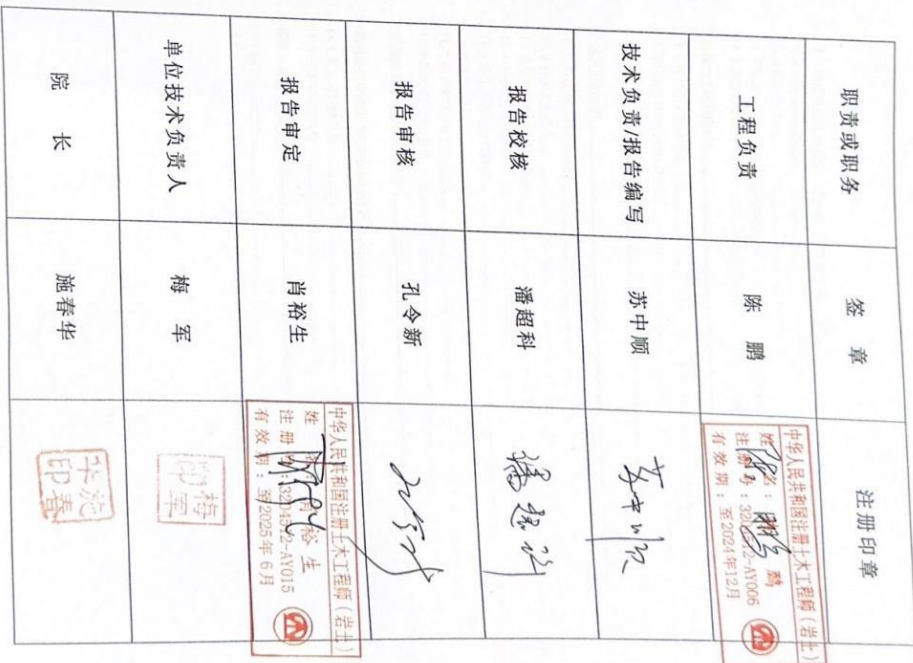 职责或职务 签 章 注册印章
工程负责 陈 鹏
中华人民共和国注册土木工程师（岩土）
姓 名：陈 鹏
有效期：至2024年12月
技术负责/报告编写 苏中顺 苏中顺
报告校核 潘超科 潘超科
报告审核 孔令新 孔令新
报告审定 肖裕生
中华人民共和国注册土木工程师（岩土）
姓 名：肖裕生
注册号：3204512-AY015
有效期：至2025年6月
单位技术负责人 梅 军 梅军印
院 长 施春华 施春华印